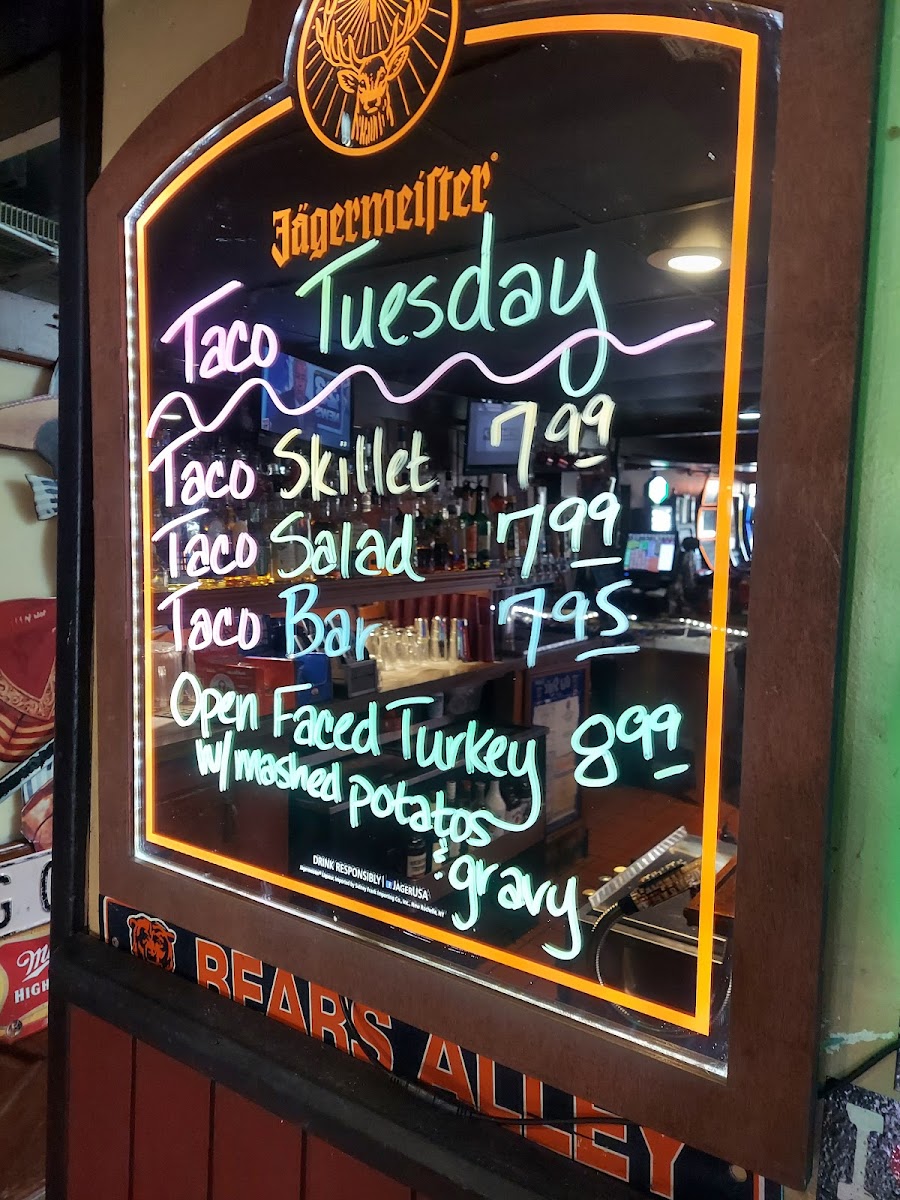 Jägermeister
Taco Tuesday
Taco Skillet 7.99
Taco Salad 7.99
Taco Bar 7.95
Open Faced Turkey 8.99
w/mashed potatos
& gravy
DRINK RESPONSIBLY | JÄGERUSA
BEARS ALLEY
HIGH